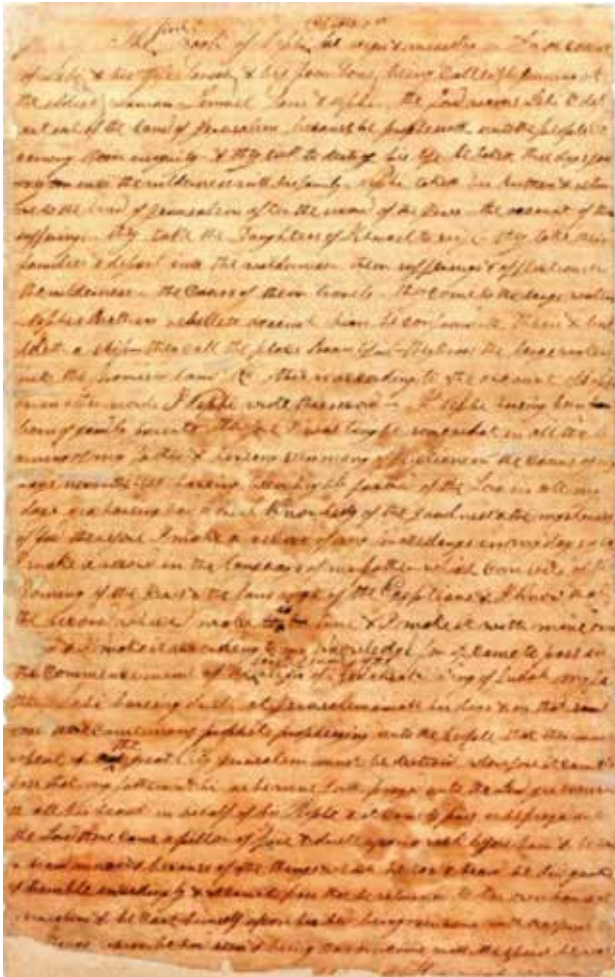 first Chapter 1st
The Book of Nephi his reign & ministry An account
of Lehi & his Wife Sariah & his four Sons being called beginning at
the eldest Laman Lemuel Sam & Nephi the Lord warns Lehi to depart
out of the land of Jerusalem because he prophesieth unto the people
concerning their iniquity & they seek to destroy his life he taketh three days
into the wilderness with his family Nephi taketh his brethren &
to the land of Jerusalem after the record of the Jews the account of
sufferings they take the Daughters of Ishmael to wife they take their
families & depart into the wilderness their sufferings & afflictions in
the wilderness the Course of their travels they come to the large waters
Nephis Brethren rebelleth against him he confoundeth them &
a ship they call the place the large waters
into the promised land &c this is according to the account of
I Nephi wrote this record I Nephi having been
of goodly parents therefore I was taught somewhat in all the
of my father & having seen many afflictions in the Course of my
days nevertheless having been highly favored of the Lord in all my
days yea having had a great knowledge of the goodness & the mysteries
of God therefore I make a record of my proceedings in my days yea
I make a record in the language of my father which consists of the
learning of the Jews & the language of the Egyptians & I know that
the record which I make to be true & I make it with mine own
& I make it according to my knowledge for it came to pass in
the commencement of the first year of the reign of Zedekiah King of Judah my
father Lehi having dwelt at Jerusalem in all his days & in that same
year there came many prophets prophesying unto the people that they must
repent or the great city Jerusalem must be destroid wherefore it came to
pass that my father Lehi as he went forth prayed unto the Lord yea even
all his heart in behalf of his People & it came to pass as he prayed unto
the Lord there came a pillar of fire & dwelt upon a rock before him & he
heard much & because of the things which he saw & heard he did quake
& tremble exceedingly & it came to pass that he returned to his own house at
Jerusalem & he cast himself upon his bed being overcome with the spirit
things which he had seen & being thus overcome with the spirit he was